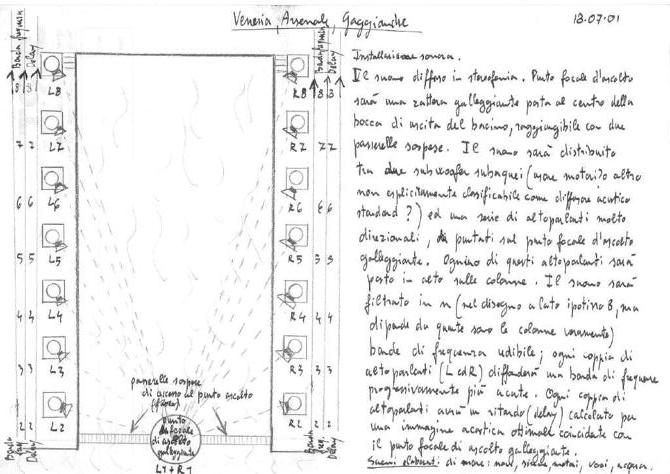 Venezia, Arsenale, Gaggiandre
13.07.01
Banda frequenza
Delay
Banda frequenza
Delay
Installazione sonora.
Il suono diffuso in stereofonia. Punto focale d'ascolto
sarà una zattera galleggiante posta al centro della
bocca di uscita del bacino, raggiungibile con due
passerelle sospese. Il suono sarà distribuito
tra due subwoofer subacquei (usare motori? o altro
non esplicitamente classificabile come diffusore acustico
standard?) ed una serie di altoparlanti molto
direzionali, puntati sul punto focale d'ascolto
galleggiante. Ognuno di questi altoparlanti sarà
posto in alto sulle colonne. Il suono sarà
filtrato in n (nel disegno a lato ipotizzo 8, ma
dipende da quante sono le colonne veramente)
bande di frequenza udibile; ogni coppia di
altoparlanti (L ed R) diffonderà una banda di frequenze
progressivamente più acute. Ogni coppia di
altoparlanti avrà un ritardo (delay) calcolato per
una immagine acustica ottimale coincidente con
il punto focale di ascolto galleggiante.
Suoni elaborati di mare, navi, sirene, motori, voci, acqua.
8 8 L8 R8 8 8
7 7 L7 R7 7 7
6 6 L6 R6 6 6
5 5 L5 R5 5 5
4 4 L4 R4 4 4
3 3 L3 R3 3 3
2 2 L2 R2 2 2
passerelle sospese
di accesso al punto ascolto
Punto
focale
di ascolto
galleggiante
L1+R1
Banda
freq.
Delay
Banda
freq.
Delay